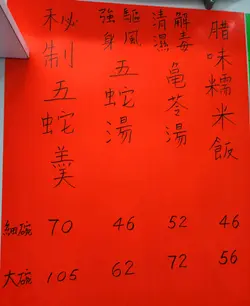 臘味糯米飯
解毒
清濕
龜苓湯
驅風
強身
五蛇湯
秘制五蛇羹
細碗 70 46 52 46
大碗 105 62 72 56